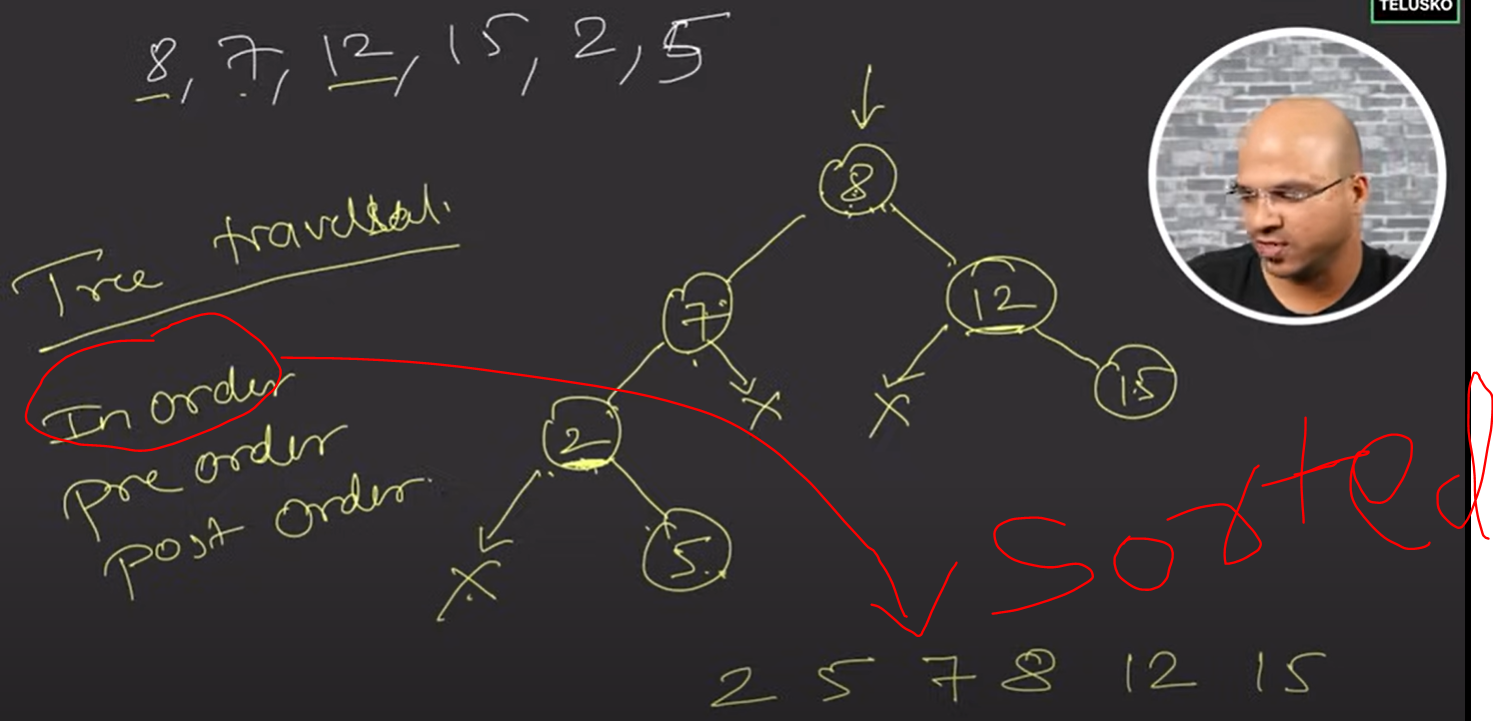 TELUSKO
8, 7, 12, 15, 2, 5
Tree traversal.
In order
pre order
post order.
8
7
12
2
15
5
X
X
X
Sorted
2 5 7 8 12 15